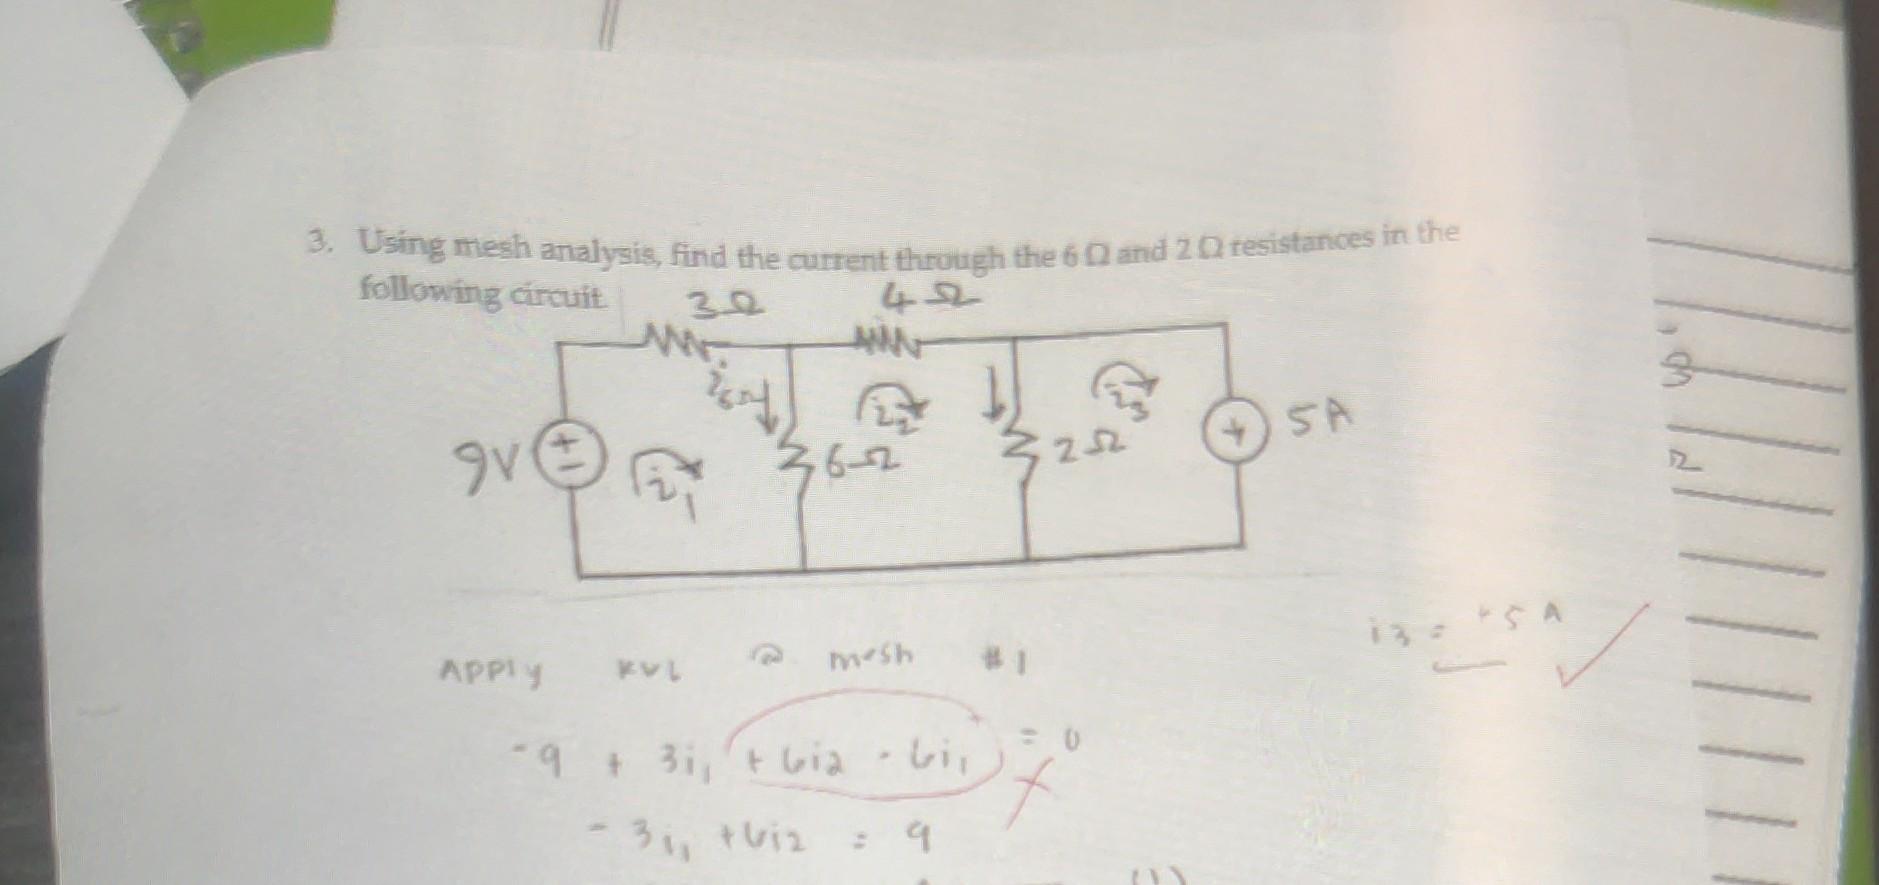 3. Using mesh analysis, find the current through the 6 Ω and 2 Ω resistances in the
following circuit.
3Ω 4Ω
9V + - i₁ i6Ω 6Ω i₂ 2Ω i₃ 5A
i3 = 5 A
Apply KVL @ mesh #1
-9 + 3i₁ + 6i2 - 6i₁ = 0
- 3i₁ + 6i2 = 9
(1)